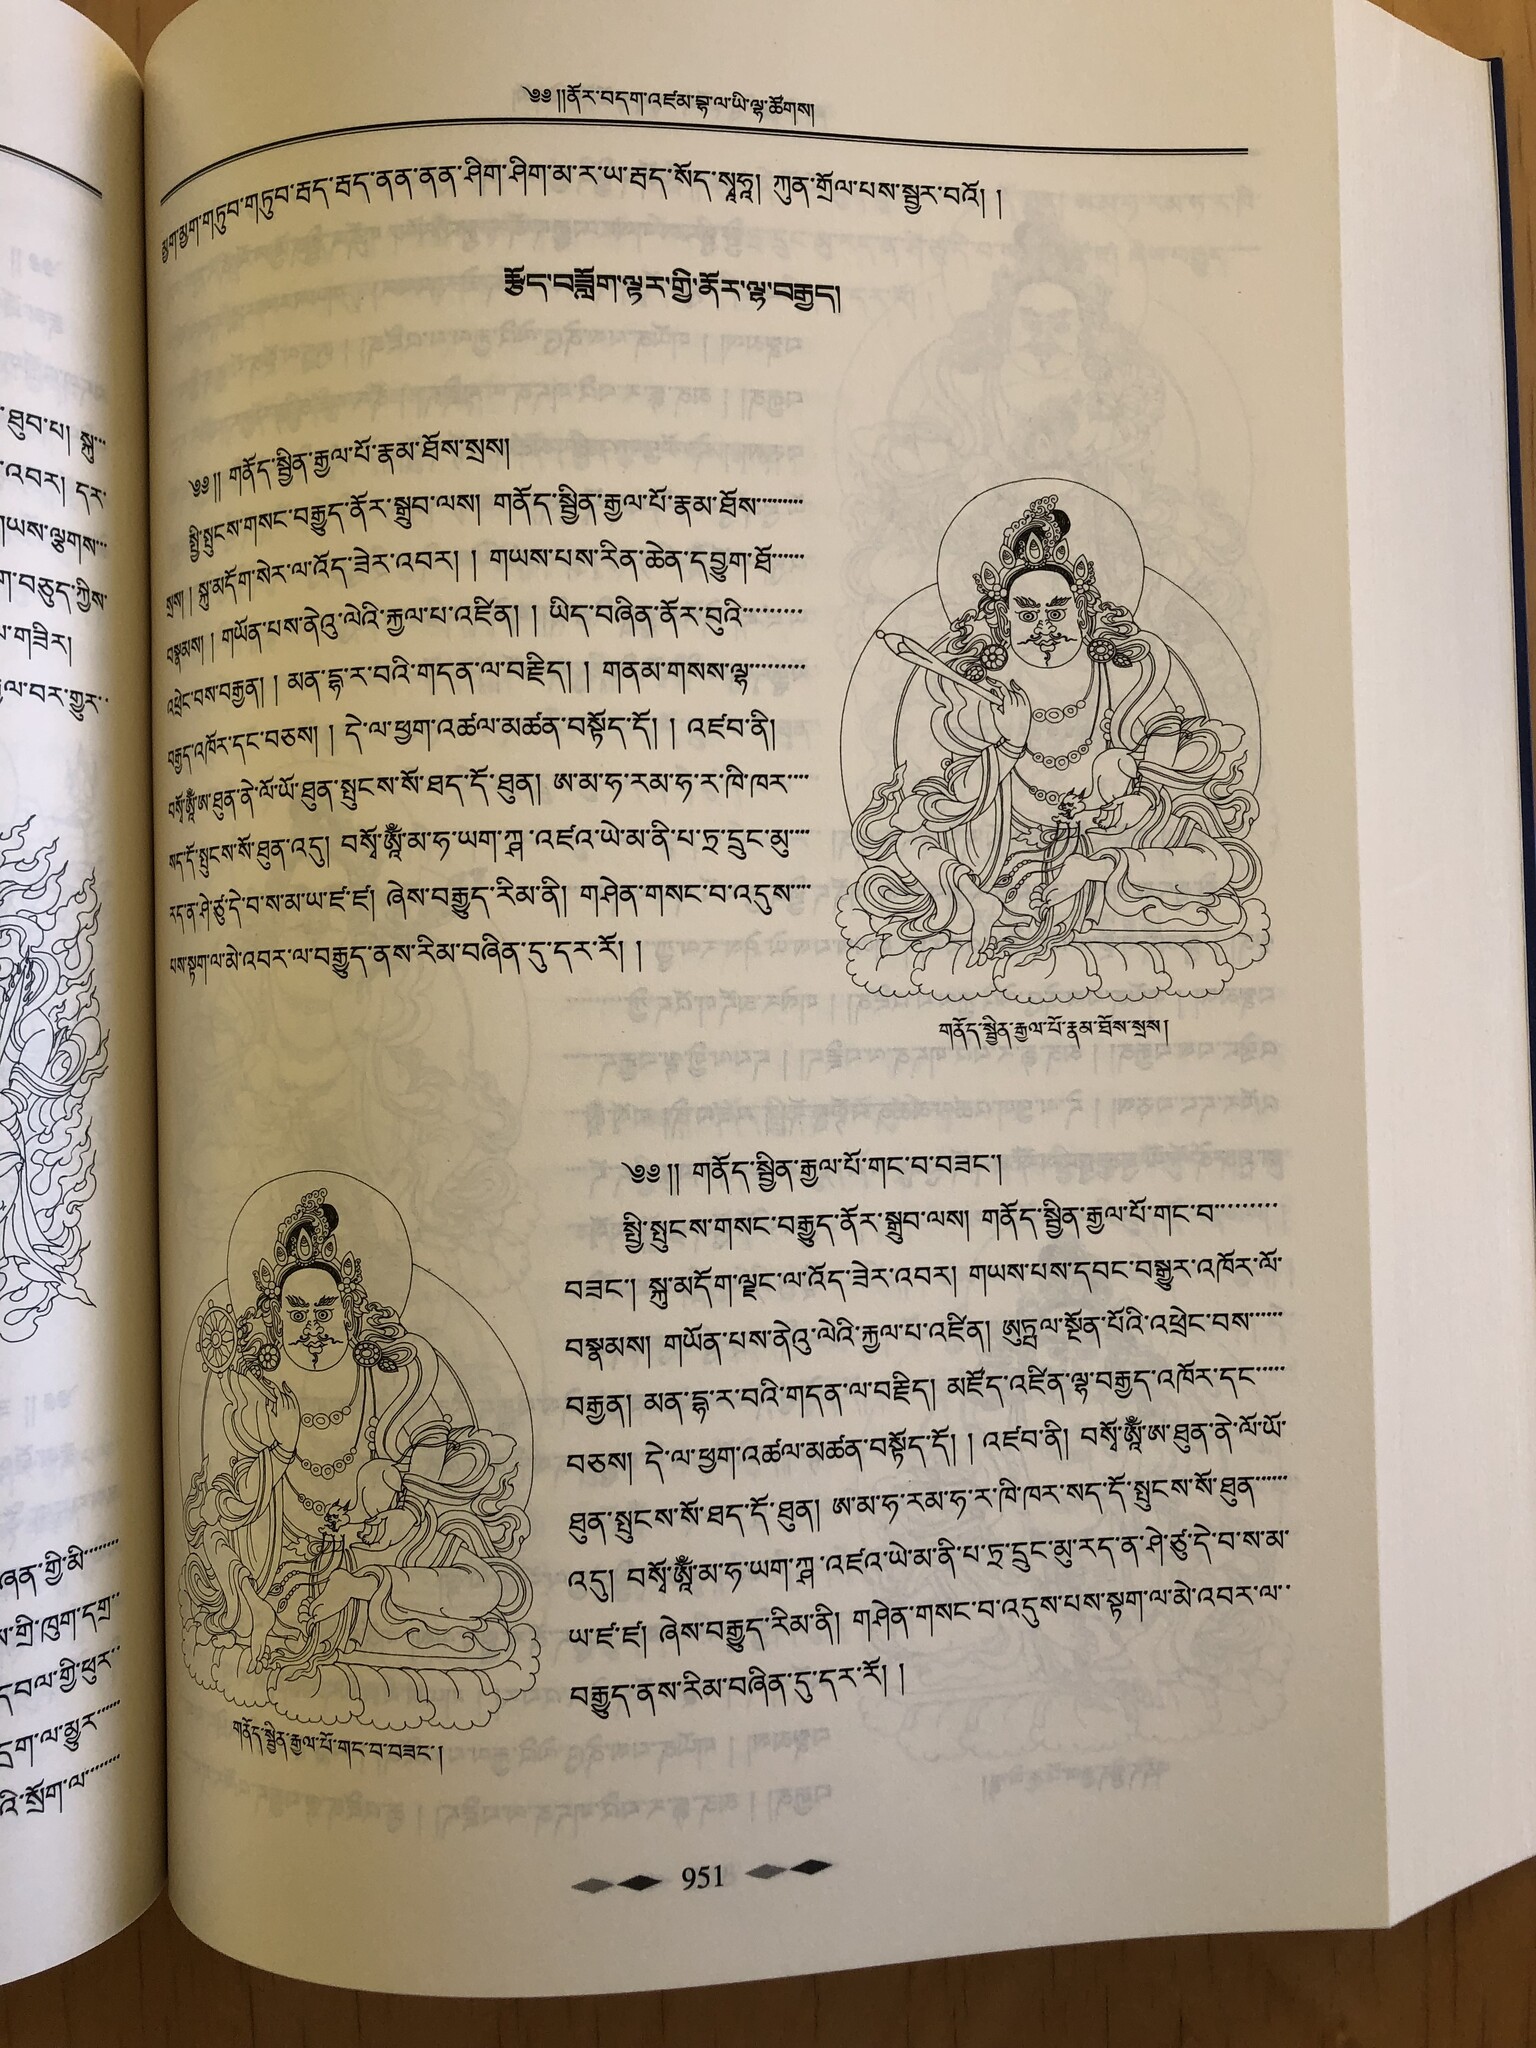 ༄༅། །ནོར་བདག་འཛམ་བྷ་ལ་ཡི་ལྷ་ཚོགས།
མྱག་མྱག་གཏུབ་གཏུབ་རྦད་རྦད་ནན་ནན་ཤིག་ཤིག་མ་ར་ཡ་རྦད་སོད་སྭཱཧཱ། ཀུན་གྲོལ་པས་སྦྱར་བའོ། །
རྩོད་བཟློག་ལྟར་གྱི་ནོར་ལྷ་བརྒྱད།
༄༅།། གནོད་སྦྱིན་རྒྱལ་པོ་རྣམ་ཐོས་སྲས།
སྤྱི་སྤུངས་གསང་བརྒྱུད་ནོར་སྒྲུབ་ལས། གནོད་སྦྱིན་རྒྱལ་པོ་རྣམ་ཐོས་
སྲས། །སྐུ་མདོག་སེར་ལ་འོད་ཟེར་འབར། །གཡས་པས་རིན་ཆེན་དབྱུག་ཐོ་
བསྣམས། །གཡོན་པས་ནེའུ་ལེའི་རྐྱལ་པ་འཛིན། །ཡིད་བཞིན་ནོར་བུའི་
འཕྲེང་བས་བརྒྱན། །མན་དྷ་ར་བའི་གདན་ལ་བརྗིད། །གནམ་གསས་ལྷ་
བརྒྱད་འཁོར་དང་བཅས། །དེ་ལ་ཕྱག་འཚལ་མཚན་བསྟོད་དོ། །འཛབ་ནི།
བསྭོ་ཨོཾ་ཨ་ཐུན་ནེ་ལོ་ཡོ་ཐུན་སྤུངས་སོ་ཐད་དོ་ཐུན། ཨ་མ་ཧ་རམ་ཧ་ར་ཁི་ཁར་
སད་དོ་སྤུངས་སོ་ཐུན་འདུ། བསྭོ་ཨོཾ་མ་ཧ་ཡག་ཀྵ་འཛའ་ཡེ་མ་ནི་པ་ཏྲ་དྲུང་མུ་
རད་ན་ཤེ་ཙུ་དེ་བ་ས་མ་ཡ་ཛ་ཛ། ཞེས་བརྒྱུད་རིམ་ནི། གཤེན་གསང་བ་འདུས་
པས་སྟག་ལ་མེ་འབར་ལ་བརྒྱུད་ནས་རིམ་བཞིན་དུ་དར་རོ། །
གནོད་སྦྱིན་རྒྱལ་པོ་རྣམ་ཐོས་སྲས།
༄༅།། གནོད་སྦྱིན་རྒྱལ་པོ་གང་བ་བཟང་།
སྤྱི་སྤུངས་གསང་བརྒྱུད་ནོར་སྒྲུབ་ལས། གནོད་སྦྱིན་རྒྱལ་པོ་གང་བ་
བཟང་། སྐུ་མདོག་ལྗང་ལ་འོད་ཟེར་འབར། གཡས་པས་དབང་བསྒྱུར་འཁོར་ལོ་
བསྣམས། གཡོན་པས་ནེའུ་ལེའི་རྐྱལ་པ་འཛིན། ཨུཏྤལ་སྔོན་པོའི་འཕྲེང་བས་
བརྒྱན། མན་དྷ་ར་བའི་གདན་ལ་བརྗིད། མཛོད་འཛིན་ལྷ་བརྒྱད་འཁོར་དང་
བཅས། དེ་ལ་ཕྱག་འཚལ་མཚན་བསྟོད་དོ། །འཛབ་ནི། བསྭོ་ཨོཾ་ཨ་ཐུན་ནེ་ལོ་ཡོ་
ཐུན་སྤུངས་སོ་ཐད་དོ་ཐུན། ཨ་མ་ཧ་རམ་ཧ་ར་ཁི་ཁར་སད་དོ་སྤུངས་སོ་ཐུན་
འདུ། བསྭོ་ཨོཾ་མ་ཧ་ཡག་ཀྵ་འཛའ་ཡེ་མ་ནི་པ་ཏྲ་དྲུང་མུ་རད་ན་ཤེ་ཙུ་དེ་བ་ས་མ་
ཡ་ཛ་ཛ། ཞེས་བརྒྱུད་རིམ་ནི། གཤེན་གསང་བ་འདུས་པས་སྟག་ལ་མེ་འབར་ལ་
བརྒྱུད་ནས་རིམ་བཞིན་དུ་དར་རོ། །
གནོད་སྦྱིན་རྒྱལ་པོ་གང་བ་བཟང་།
951